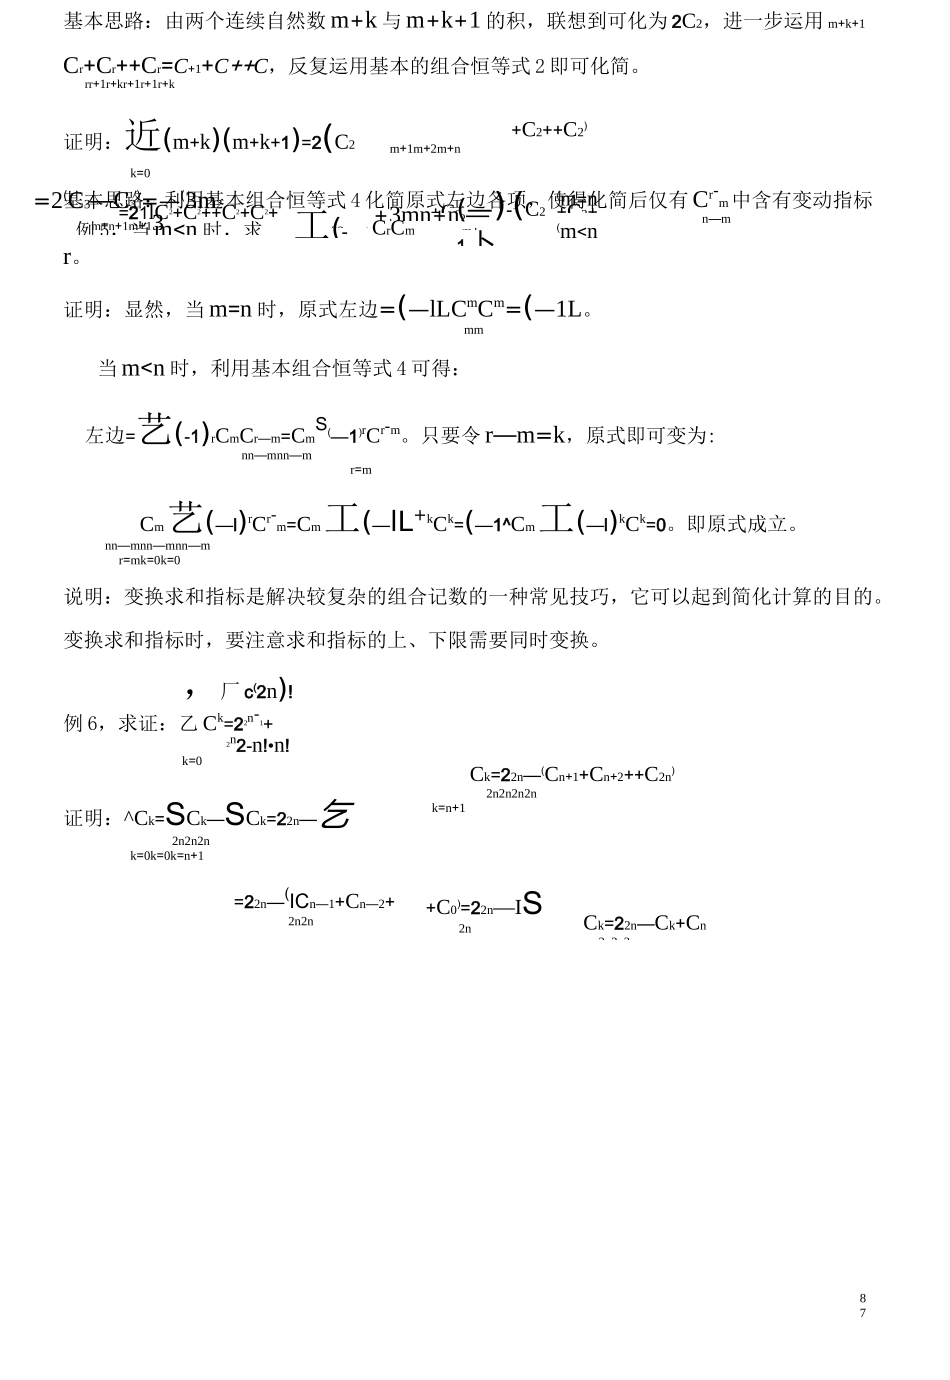 基本思路：由两个连续自然数 m+k 与 m+k+1 的积，联想到可化为 2C2，进一步运用 m+k+1
Cr+Cr++Cr=C+1+C++C，反复运用基本的组合恒等式 2 即可化简。
rr+1r+kr+1r+1r+k
证明：近(m+k)(m+k+1)=2(C2 +C2++C2)
m+1m+2m+n
k=0
基本思路：利用基本组合恒等式 4 化简原式左边各项，使得化简后仅有 Cr-m 中含有变动指标
n—m
r。
证明：显然，当 m=n 时，原式左边=(—lLCmCm=(—1L。
mm
当 m<n 时，利用基本组合恒等式 4 可得：
左边=艺(-1)rCmCr—m=CmS(—1)rCr-m。只要令 r—m=k，原式即可变为:
nn—mnn—m
r=m
Cm 艺(—l)rCr-m=Cm 工(—lL+kCk=(—1^Cm 工(—l)kCk=0。即原式成立。
nn—mnn—mnn—m
r=mk=0k=0
说明：变换求和指标是解决较复杂的组合记数的一种常见技巧，它可以起到简化计算的目的。
变换求和指标时，要注意求和指标的上、下限需要同时变换。
， 厂 c(2n)!
例 6，求证：乙 Ck=22n-1+
2n2-n!•n!
k=0
Ck=22n—(Cn+1+Cn+2++C2n)
2n2n2n2n
k=n+1
证明：^Ck=SCk—SCk=22n—乞
2n2n2n
k=0k=0k=n+1
=22n—(ICn—1+Cn—2+ +C0)=22n—IS Ck=22n—Ck+Cn
2n2n 2n
8
7